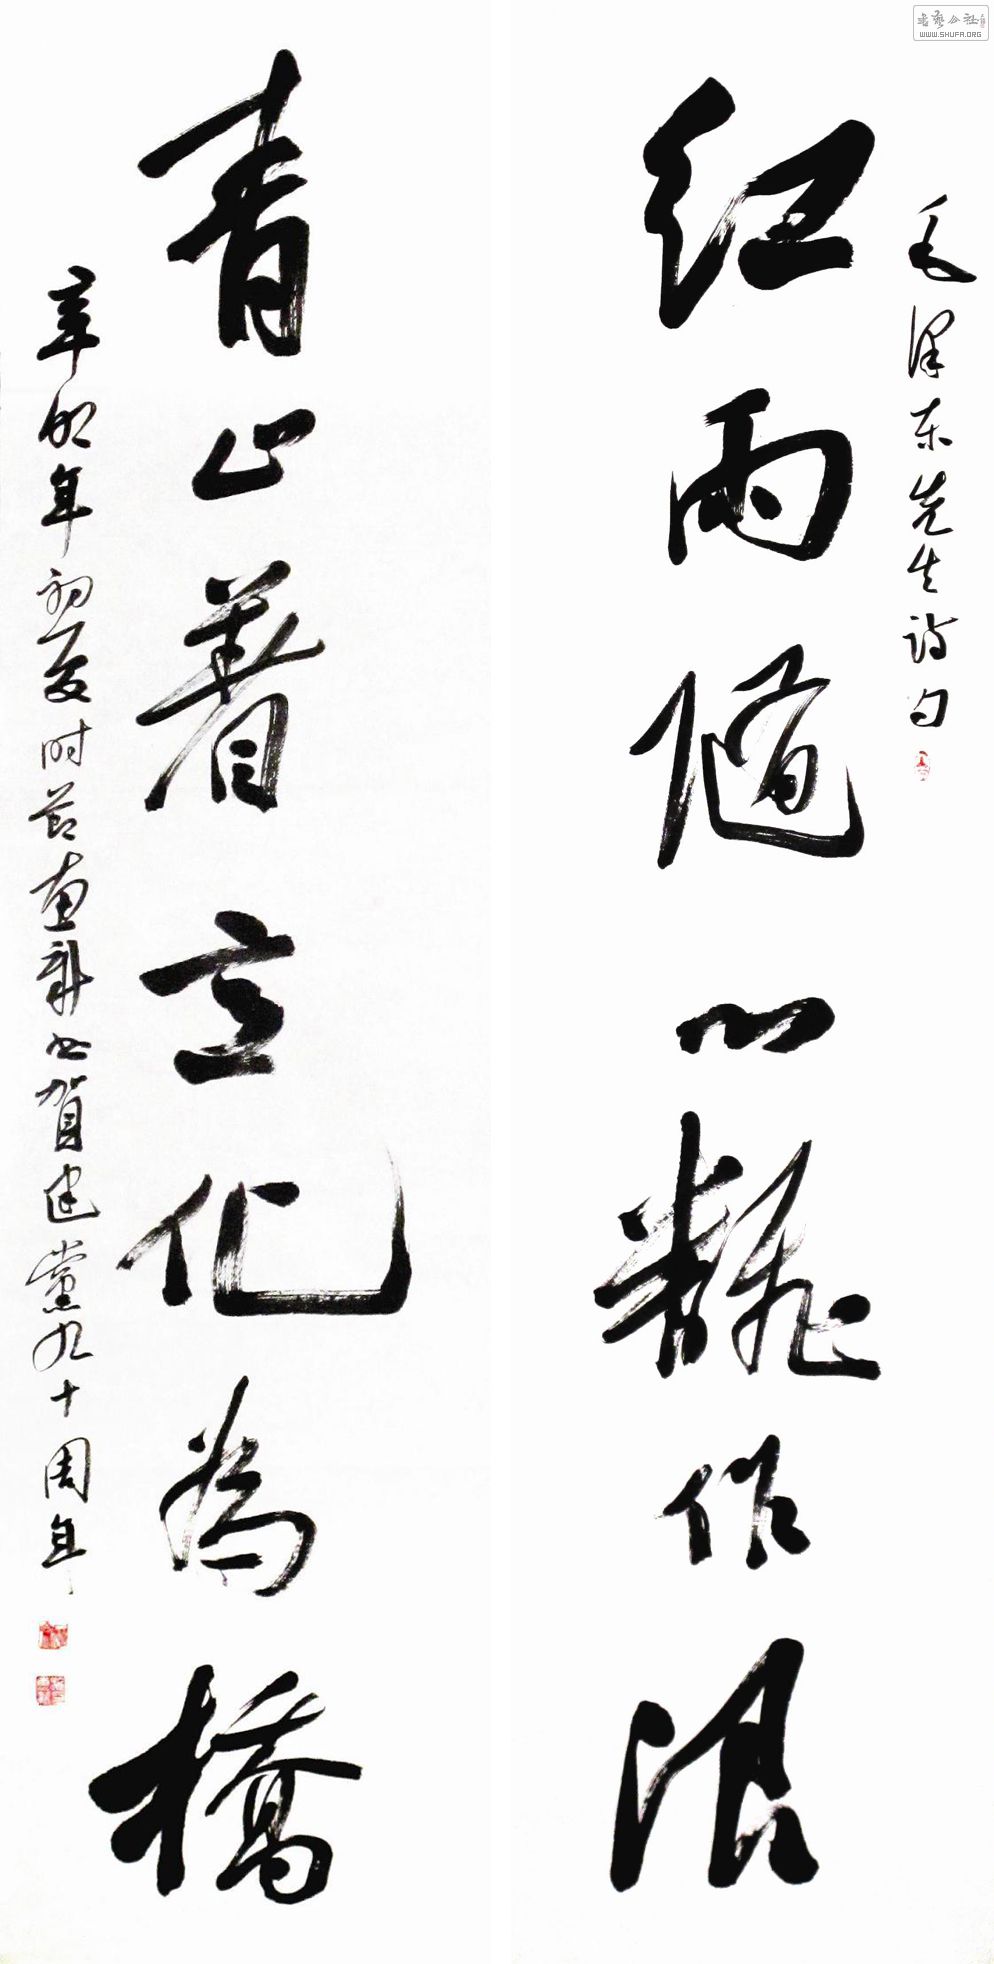 書藝公社
WWW.SHUFA.ORG
毛泽东先生诗句
红雨随心飜作浪
青山着意化為橋
辛卯年初夏时节书賀建黨九十周年